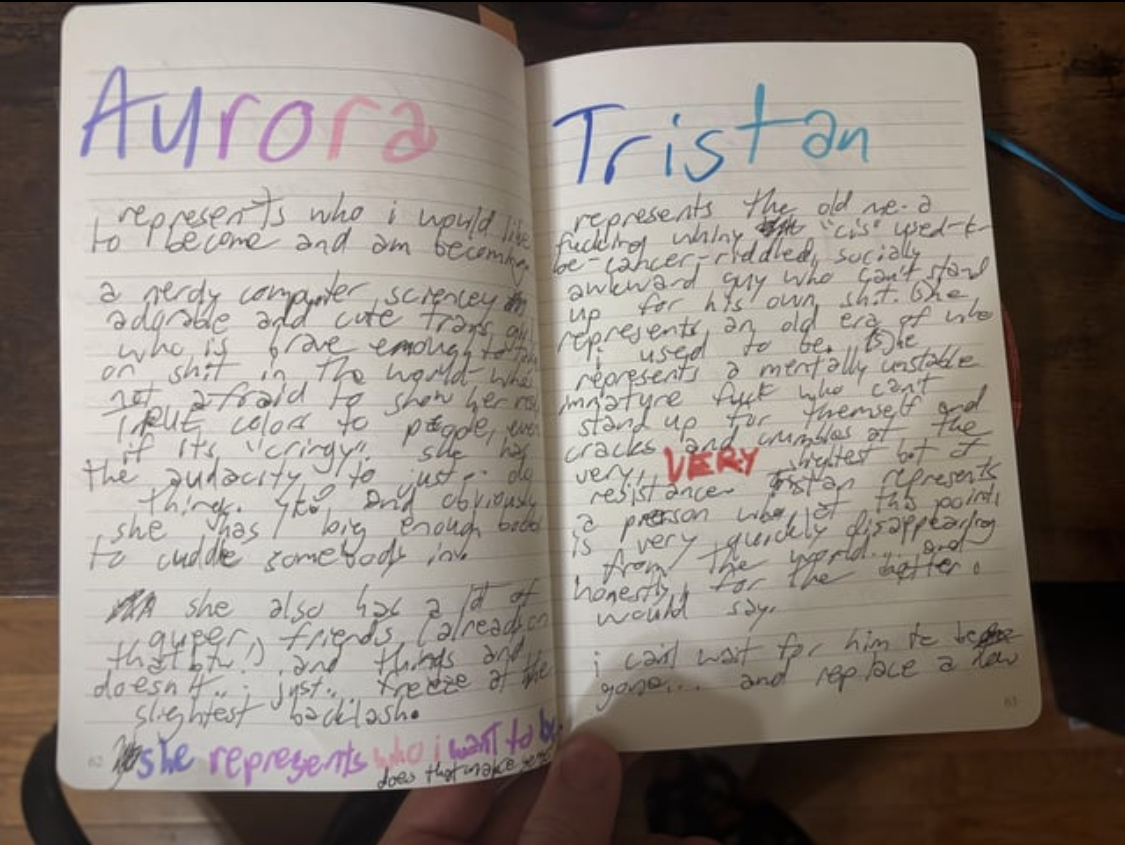 Aurora
represents who i would like
to become and am becoming
a nerdy computer sciencey
adorable and cute trans girl
who is brave enough to
on shit in the world who's
not afraid to show her
TRUE colors to people, even
if its "cringy". she has
the audacity to just.. do
things. and obviously
she has big enough boobs
to cuddle somebody in.
she also has a lot of
queer friends (already on
that btw!) and things and
doesn't... just.. freeze at the
slightest backlash.
she represents who i want to be.
does that make sense
62
Tristan
represents the old me. a
fucking whiny "cis" used-t-
be-cancer-riddled, socially
awkward guy who can't stand
up for his own shit. (s)he
represents an old era of who
i used to be. (s)he
represents a mentally unstable
immature fuck who can't
stand up for themself and
cracks and crumbles at the
very, VERY slightest bit of
resistance. Tristan represents
a person who at this point
is very quickly disappearing
from the world... and
honestly, for the better i
would say.
i can't wait for him to be
gone... and replace a
63